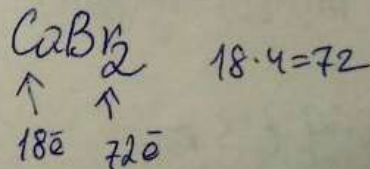 CaBr₂ 18·4=72
↑ ↑
18ē 72ē